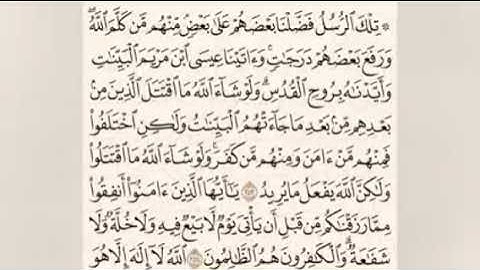 ۞ تِلْكَ ٱلرُّسُلُ فَضَّلْنَا بَعْضَهُمْ عَلَىٰ بَعْضٍ مِّنْهُم مَّن كَلَّمَ ٱللَّهُ ۖ
وَرَفَعَ بَعْضَهُمْ دَرَجَٰتٍ ۚ وَءَاتَيْنَا عِيسَى ٱبْنَ مَرْيَمَ ٱلْبَيِّنَٰتِ
وَأَيَّدْنَٰهُ بِرُوحِ ٱلْقُدُسِ ۗ وَلَوْ شَآءَ ٱللَّهُ مَا ٱقْتَتَلَ ٱلَّذِينَ مِنۢ
بَعْدِهِم مِّنۢ بَعْدِ مَا جَآءَتْهُمُ ٱلْبَيِّنَٰتُ وَلَٰكِنِ ٱخْتَلَفُوا۟
فَمِنْهُم مَّنْ ءَامَنَ وَمِنْهُم مَّن كَفَرَ ۚ وَلَوْ شَآءَ ٱللَّهُ مَا ٱقْتَتَلُوا۟
وَلَٰكِنَّ ٱللَّهَ يَفْعَلُ مَا يُرِيدُ ۝٢٥٣ يَٰٓأَيُّهَا ٱلَّذِينَ ءَامَنُوٓا۟ أَنفِقُوا۟
مِمَّا رَزَقْنَٰكُم مِّن قَبْلِ أَن يَأْتِىَ يَوْمٌ لَّا بَيْعٌ فِيهِ وَلَا خُلَّةٌ وَلَا
شَفَٰعَةٌ ۗ وَٱلْكَٰفِرُونَ هُمُ ٱلظَّٰلِمُونَ ۝٢٥٤ ٱللَّهُ لَآ إِلَٰهَ إِلَّا هُوَ